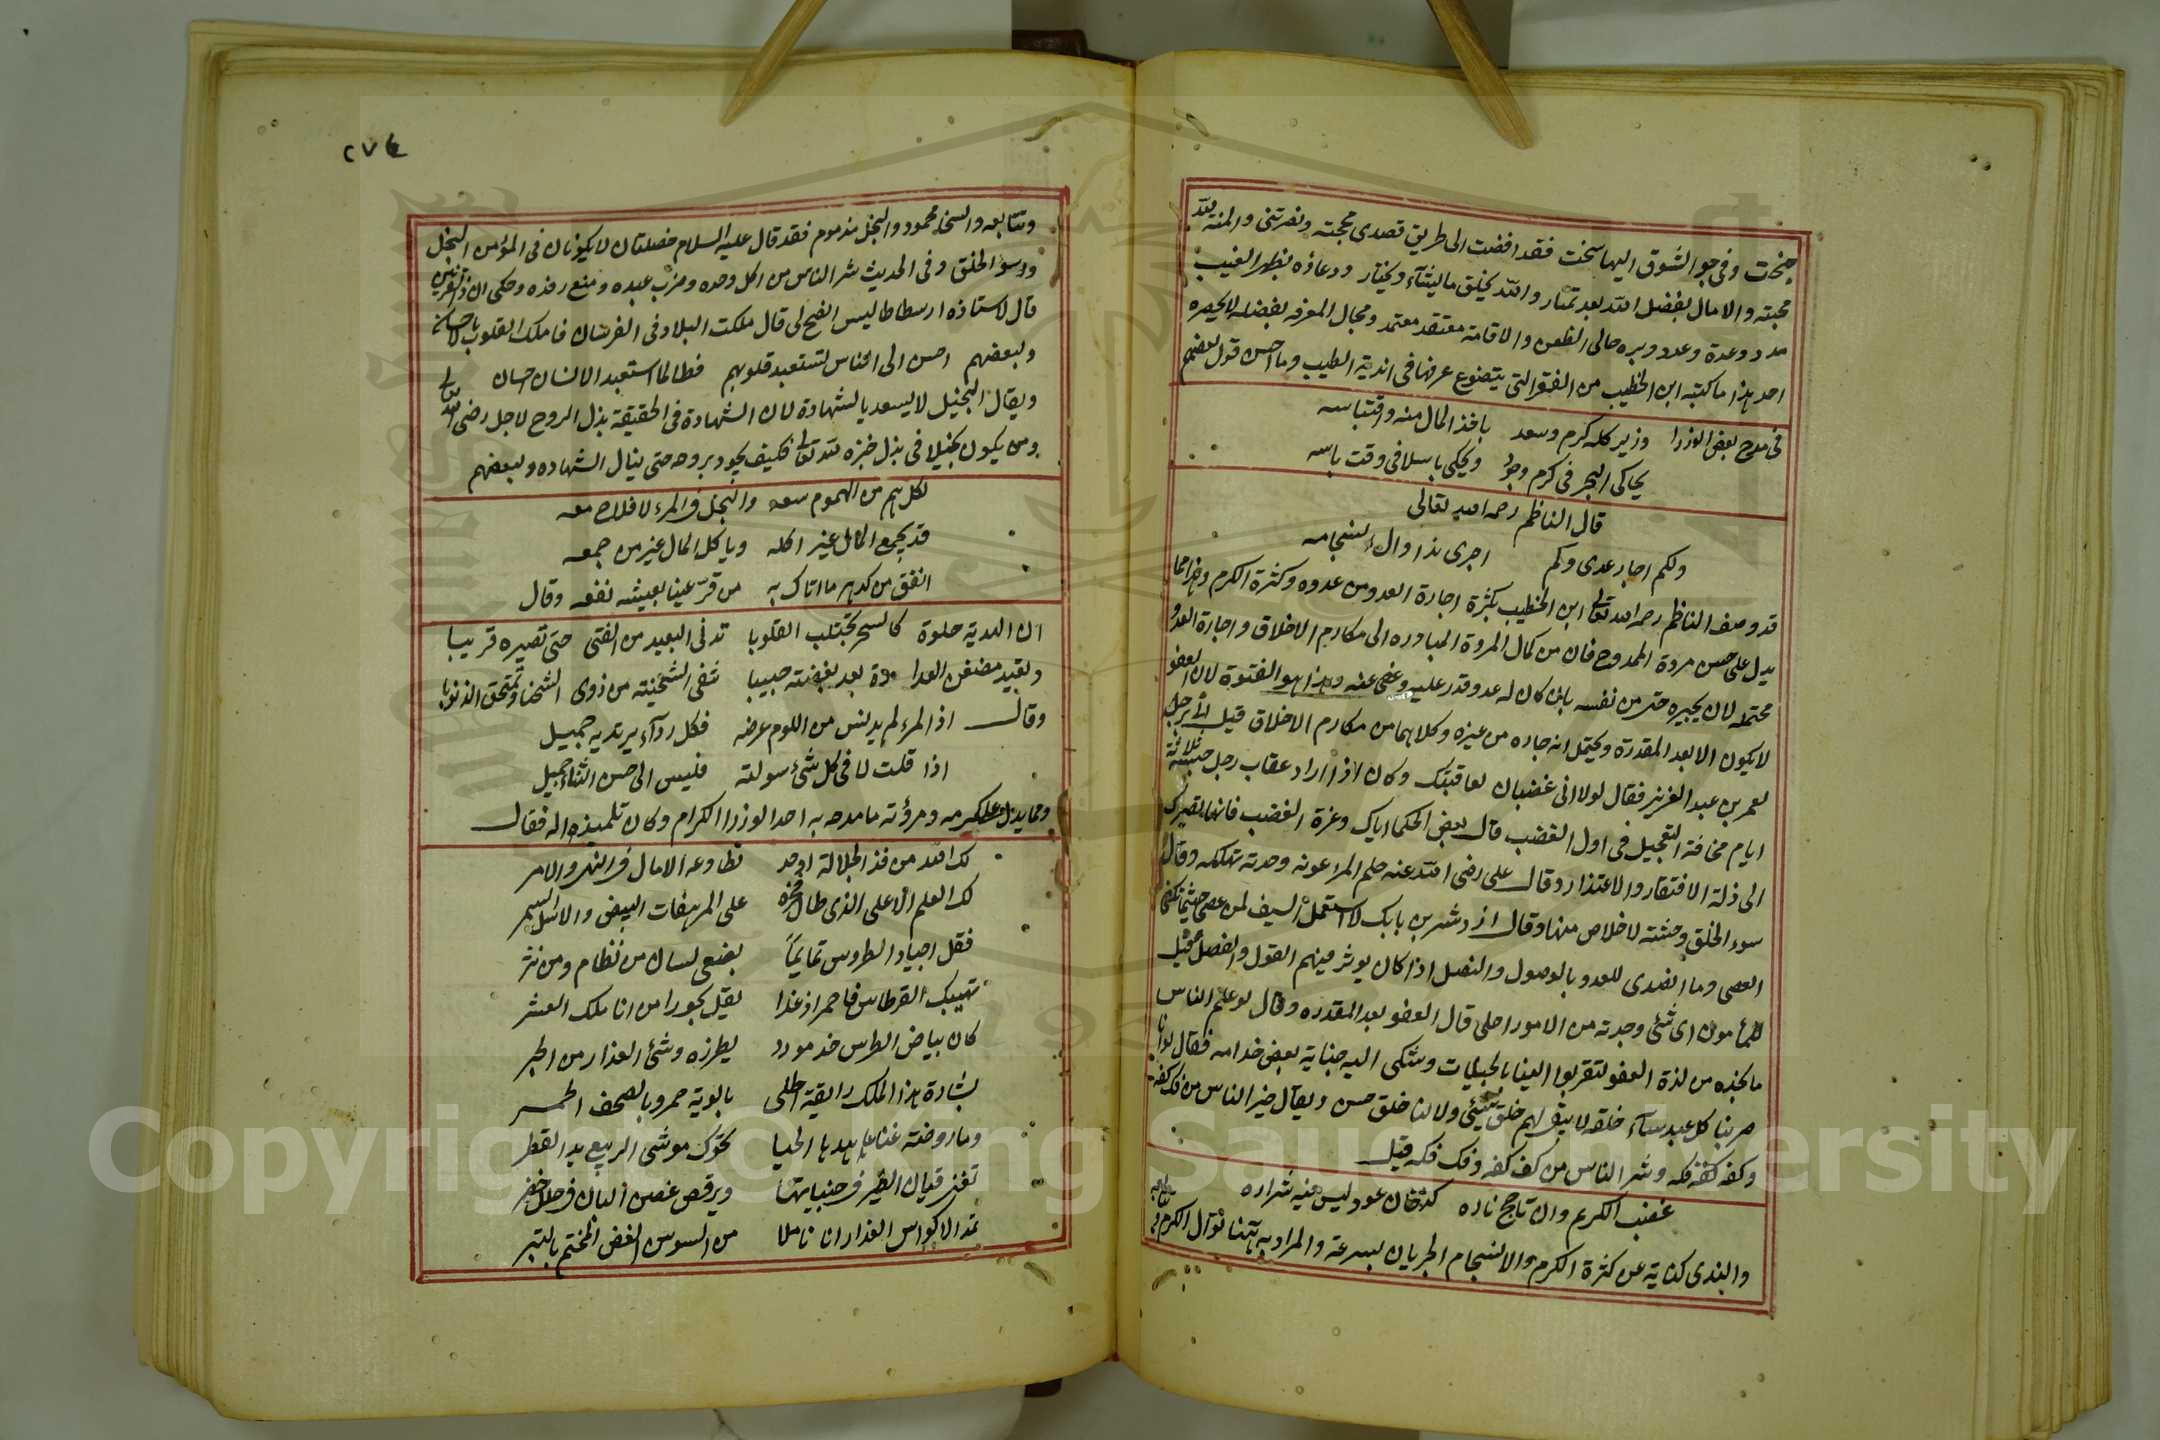 جنحت وفى جو الشوق اليها سنحت فقد افضت الى طريق قصدى محجته ونصرتنى والمنة لله
محجته والامال بفضل الله بعد تمتار والله يخلق ما يشآء ويختار ودعاؤه بظهر الغيب
مدد وعدة وعدد وبره حالى الظعن والاقامة معتقد معتمد ومجال المعرفه بفضله لا يحصره
احد هذا ما كتبه ابن الخطيب من الفقر التى يتضوع عرفها فى اندية الطيب وما احسن قول بعضهم
فى مدح بعض الوزرا وزير كله كرم وسعد باخذ المال منه واقتباسه
يحاكى البحر فى كرم وجود ويحكى باسلا فى وقت باسه
قال الناظم رحمه الله تعالى
ولكم اجار عدى وكم اجرى ندا والى لسجامه
قد وصف الناظم رحمه الله تعالى ابن الخطيب بكثرة اجارة العدو من عدوه وكثرة الكرم وهذا مما
يدل على حسن مروة الممدوح فان من كمال المروة المبادره الى مكارم الاخلاق واجارة العدو
محتملة لان يجيره حتى من نفسه بان كان له عدو وقدر عليه وعفى عنه وهذا هو الفتوة لان العفو
لا يكون الا بعد المقدرة ويحتمل انه جاره من غيره وكلاهما من مكارم الاخلاق قيل
لعمر بن عبد العزيز فقال لولا انى غضبان لعاقبتك وكان اذا اراد عقاب رجل حبسه ثلاثة
ايام مخافة التعجيل فى اول الغضب قال بعض الحكما اياك وعزة الغضب فانها تصيرك
الى ذلة الافتقار والاعتذار وقال على رضى الله عنه حلم المرا عونه وحدته تهلكه وقال
سوء الخلق وحشة لا خلاص منها وقال ازدشر بن بابك لا استعمل السيف لمن عصى حيث تكفى
العصى وما انضدى للعدو بالوصول والنصل اذا كان يوثر فيهم القول والفصل قيل
للمأمون اى شئ وجدته من الامور احلى قال العفو بعد المقدره وقال لو علم الناس
ما نجده من لذة العفو لتقربوا الينا بالجنايات وشكى اليه جناية بعض خدامه فقال لو انا
ضربنا كل عبد ساء خلقه لا يبقى لهم خلق سيئ ولا لنا خلق حسن ويقال خير الناس من فك كفه
وكفه كفه فكه وشر الناس من كف كفه وفك فكه قيل
غضب الكريم وان تاجج ناره كدخان عود ليس فيه شراره
والندى كناية عن كثرة الكرم والانسجام الجريان بسرعة والمراد به هنا توال الكرم
٢٧٤
وتتابعه والسخا محمود والبخل مذموم فقد قال عليه السلام خصلتان لا يكونان فى المؤمن البخل
وسوء الخلق وفى الحديث شر الناس من اكل وحده وضرب عبده ومنع رفده وحكى ان ذو القرنين
قال لاستاذه ارسطاطاليس انصح لى قال ملكت البلاد فى الفرسان فاملك القلوب بالاحسان
ولبعضهم احسن الى الناس تستعبد قلوبهم فطالما استعبد الانسان احسان
ويقال البخيل لا يسعد بالشهادة لان الشهادة فى الحقيقة بذل الروح لاجل رضى الله تعالى
ومن يكون بخيلا فى بذل خبزه لله تعالى فكيف يجود بروحه حتى ينال الشهاده ولبعضهم
لكل هم من الهموم سعه والبخل فى المرء لا فلاح معه
قد يجمع المال غير اكله وياكل المال غير من جمعه
انفق من كدهر ما اتاك به من قر عينا بعيشه نفعه وقال
ان الهدية حلوة كالسحر تجتلب القلوبا تدنى البعيد من الفتى حتى تصيره قريبا
وتعيد مضغن العدا وة بعد بغضته حبيبا تنفى الشخينة من ذوى الشحنا وتمتحق الذنوبا
وقال اذ المرء لم يدنس من اللوم عرضه فكل ردآء يرتديه جميل
اذا قلت لا فى كل شئ سولته فليس الى حسن الثناء جميل
ومما يدل على كرمه ومرؤته ما مدحه به احد الوزرا الكرام وكان تلميذه اله فقال
لك الله من فذ الجلالة اوحد تطاوعه الامال فى النهى والامر
لك العلم الاعلى الذى طال فخره على المرهفات البيض والاسل السمر
فقل اجياد الطروس تمايما بصنعى لسان من نظام ومن نثر
تهيبك القرطاس فاحمر اذ غذا يقل بحورا من اناملك العشر
كان بياض الطرس خد مورد يطرزه وشئ العذار من الحبر
بشارة هذا الملك رايقة الحلى بالوية حمر وبالصحف الحمر
وما روضة غنا عاهدها الحيا تحوك موشى الربيع يد القطر
تغنى قيان الطير فى جنباتها ويرقص غصن البان فى حلل خضر
تمد لاكواس العذار اناملا من السوسن الغض المختم بالتبر
Copyright © King Saud University